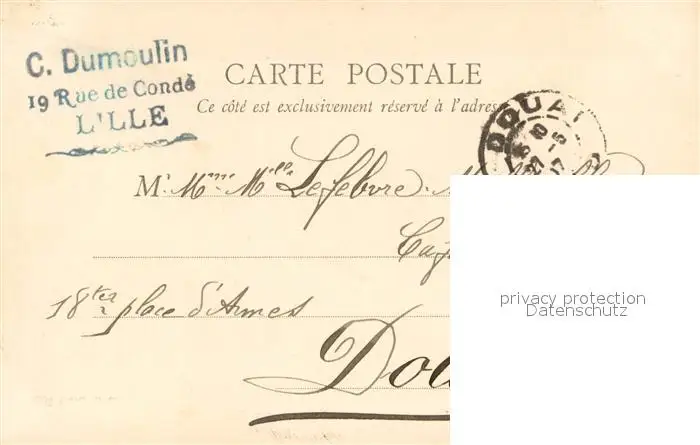 C. Dumoulin
19 Rue de Condé
LILLE
CARTE POSTALE
Ce côté est exclusivement réservé à l'adresse
DOUAI
M Mme Mlle Lefebvre
18 place d'Armes
Dou
privacy protection
Datenschutz